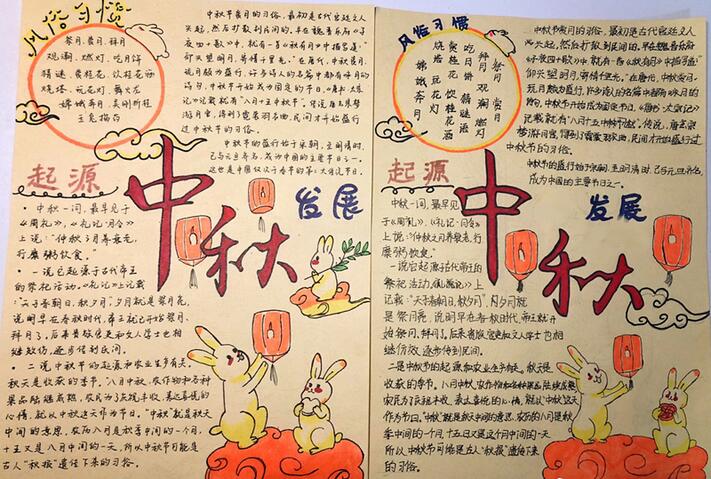 风俗习惯
祭月、赏月、拜月
观潮、燃灯、吃月饼
猜谜、赏桂花、饮桂花酒
烧塔、玩花灯、舞火龙
嫦娥奔月、吴刚折桂
玉兔捣药
中秋节赏月的习俗，最初是古代宫廷文人
兴起，然后扩散到民间的。早在魏晋乐府《子
夜四十歌》中，就有一首《秋有月》中描写道"
仰头望明月，寄情千里光。"在唐代，中秋赏月、
玩月颇为盛行，许多诗人的名篇中都有咏月的
诗句，中秋节开始成为固定的节日，《唐书·太宗
记》记载就有"八月十五中秋节"。传说唐玄宗梦
游月宫，得到了霓裳羽衣曲，民间才开始盛行
过中秋节的习俗。
中秋节的盛行始于宋朝，至明清时，
已与元旦齐名，成为中国的主要节日之一。
这也是中国仅次于春节的第二大传统节日。
起源
中秋
发展
中秋一词，最早见于
《周礼》、《礼记·月令》
上说："仲秋之月养衰老，
行糜粥饮食。"
一说它起源于古代帝王
的祭祀活动。《礼记》上记载
"天子春朝日，秋夕月"，夕月就是祭月亮，
说明早在春秋时代，帝王就已开始祭月、
拜月了。后来贵族官吏和文人学士也相
继效仿，逐步传到民间。
二说，中秋节的起源和农业生产有关。
秋天是收获的季节。八月中秋，农作物和各种
果品陆续成熟，农民为了庆祝丰收，表达喜悦的
心情，就以中秋这天作为节日。"中秋"就是秋天
中间的意思，农历八月是秋季中间的一个月，
十五又是八月中间的一天，所以中秋节可能是
古人"秋报"遗传下来的习俗。
风俗习惯
祭月 赏月
拜月 观潮 燃灯
吃月饼 猜谜语
赏桂花 饮桂花酒
烧塔 玩花灯
嫦娥奔月
中秋节赏月的习俗，最初是古代宫廷文人
兴起，然后扩散到民间的。早在魏晋乐府
《子夜四十歌》中就有一首《秋有月》中描写道"
仰头望明月，寄情千里光"。在唐代，中秋赏月、
玩月颇为盛行，许多诗人的名篇中都有咏月的诗
句，中秋节开始成为固定节日，《唐书·太宗记》
记载就有"八月十五中秋节"。传说，唐玄宗
梦游月宫，得到了霓裳羽衣曲，民间才开始盛行过
中秋节的习俗。
中秋节的盛行始于宋朝，至明清时，已与元旦齐名，
成为中国的主要节日之一。
起源
中秋
发展
中秋一词，最早见
于《周礼》、《礼记·月令》
上说："仲秋之月养衰老，行
糜粥饮食。"
一说它起源古代帝王的
祭祀活动，《礼记》上
记载"天子春朝日，秋夕月"，夕月就
是祭月亮，说明早在春秋时代，帝王就开
始祭月、拜月了。后来贵族官吏和文人学士也相
继仿效，逐步传到民间。
二是中秋节的起源和农业生产有关。秋天是
收获的季节。八月中秋，农作物和各种果品陆续成熟
农民为了庆祝丰收，表达喜悦的心情，就以中秋这天
作为节日。"中秋"就是秋天中间的意思，农历的八月是秋
季中间的一个月，十五日又是这个月中间的一天
所以中秋节可能是古人"秋报"遗传下来
的习俗。